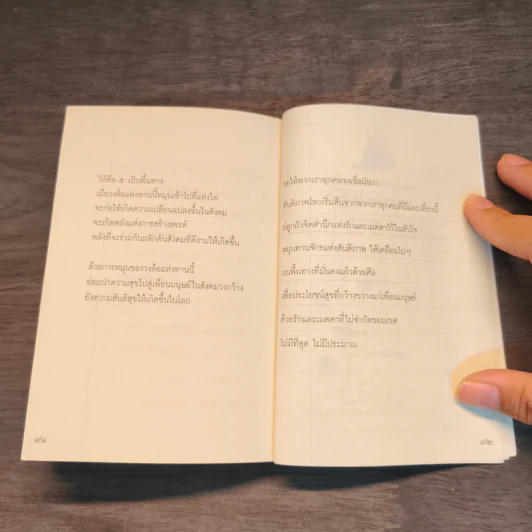 ให้ศีล ๕ เป็นพื้นทาง
เมื่อวงล้อแห่งทานนี้หมุนเข้าไปที่แห่งใด
จะก่อให้เกิดความเปลี่ยนแปลงขึ้นในสังคม
จะเกิดพลังแห่งการสร้างสรรค์
พลังที่จะร่วมกันผลักดันสังคมที่ดีงามให้เกิดขึ้น
ด้วยการหมุนของวงล้อแห่งทานนี้
ย่อมนำความสุขไปสู่เพื่อนมนุษย์ในสังคมวงกว้าง
ยังความสันติสุขให้เกิดขึ้นในโลก
ขอให้พวกเราทุกคนจงเชื่อมั่นว่า
สันติภาพโลกเริ่มต้นจากพวกเราทุกคนที่นี่และเดี๋ยวนี้
ปลูกฝังจิตสำนึกแห่งรักและเมตตาไว้ในหัวใจ
หมุนทานจักรแห่งสันติภาพ ให้เคลื่อนไปๆ
บนพื้นทางที่มั่นคงแล้วด้วยศีล
เพื่อประโยชน์สุขที่กว้างขวางแก่เพื่อนมนุษย์
ด้วยรักและเมตตาที่ไม่จำกัดขอบเขต
ไม่มีที่สุด ไม่มีประมาณ